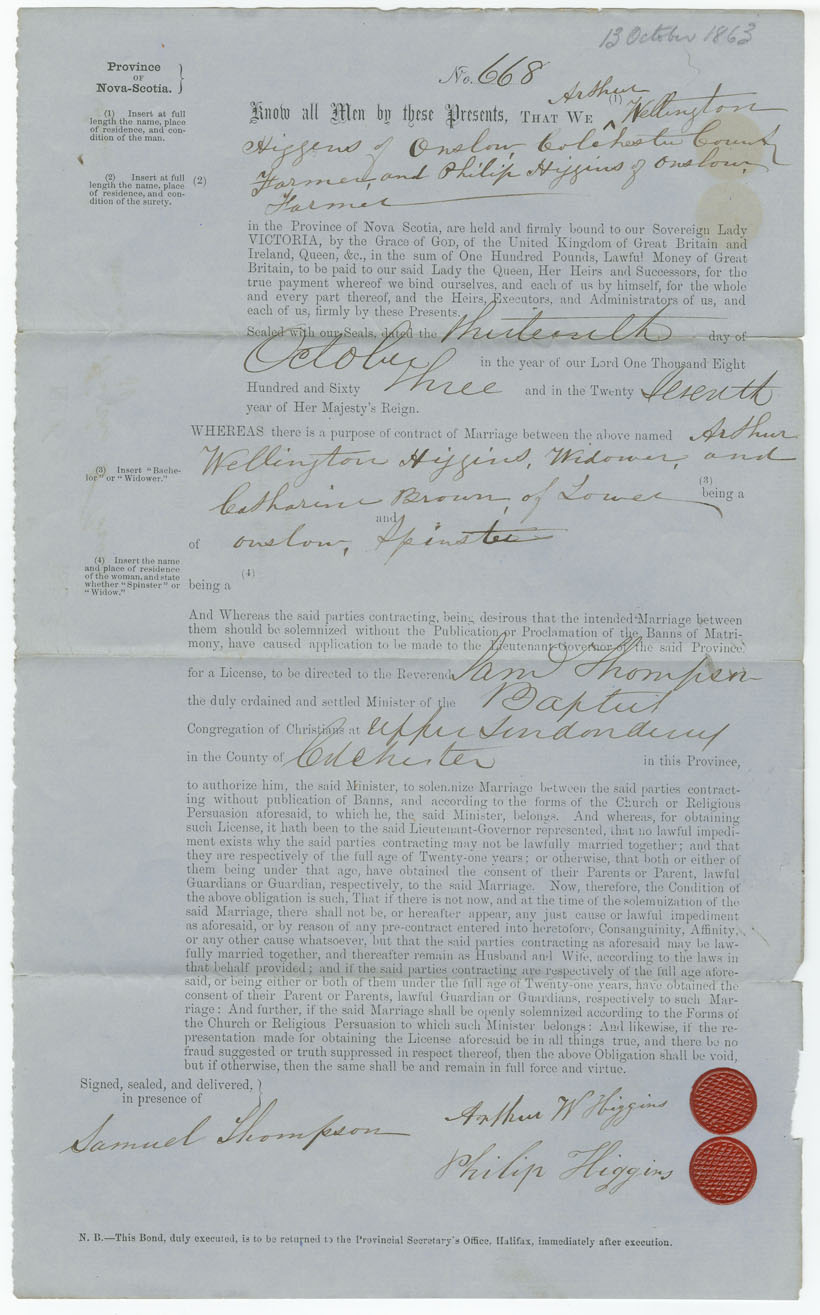 13 October 1863
Province
OF
Nova-Scotia. }
No. 668
(1) Insert at full
length the name, place
of residence, and con-
dition of the man.
Arthur
Know all Men by these Presents, THAT WE ^ (1) Wellington
Higgins of Onslow, Colchester County
(2) Insert at full
length the name, place
of residence, and con-
dition of the surety.
(2) Farmer, and Philip Higgins of Onslow,
Farmer
in the Province of Nova Scotia, are held and firmly bound to our Sovereign Lady
VICTORIA, by the Grace of GOD, of the United Kingdom of Great Britain and
Ireland, Queen, &c., in the sum of One Hundred Pounds, Lawful Money of Great
Britain, to be paid to our said Lady the Queen, Her Heirs and Successors, for the
true payment whereof we bind ourselves, and each of us by himself, for the whole
and every part thereof, and the Heirs, Executors, and Administrators of us, and
each of us, firmly by these Presents.
Sealed with our Seals, dated the Thirteenth day of
October in the year of our Lord One Thousand Eight
Hundred and Sixty three and in the Twenty Seventh
year of Her Majesty's Reign.
WHEREAS there is a purpose of contract of Marriage between the above named Arthur
Wellington Higgins, Widower, and
(3) Insert "Bache-
lor" or "Widower."
Catharine Brown, of Lower (3) being a
and
of Onslow, Spinster
(4) Insert the name
and place of residence
of the woman, and state
whether "Spinster" or
"Widow."
(4)
being a
And Whereas the said parties contracting, being desirous that the intended Marriage between
them should be solemnized without the Publication or Proclamation of the Banns of Matri-
mony, have caused application to be made to the Lieutenant-Governor of the said Province
for a License, to be directed to the Reverend Sam Thompson
the duly ordained and settled Minister of the Baptist
Congregation of Christians at Upper Londonderry
in the County of Colchester in this Province,
to authorize him, the said Minister, to solemnize Marriage between the said parties contract-
ing without publication of Banns, and according to the forms of the Church or Religious
Persuasion aforesaid, to which he, the said Minister, belongs. And whereas, for obtaining
such License, it hath been to the said Lieutenant-Governor represented, that no lawful impedi-
ment exists why the said parties contracting may not be lawfully married together; and that
they are respectively of the full age of Twenty-one years; or otherwise, that both or either of
them being under that age, have obtained the consent of their Parents or Parent, lawful
Guardians or Guardian, respectively, to the said Marriage. Now, therefore, the Condition of
the above obligation is such, That if there is not now, and at the time of the solemnization of the
said Marriage, there shall not be, or hereafter appear, any just cause or lawful impediment
as aforesaid, or by reason of any pre-contract entered into heretofore, Consanguinity, Affinity,
or any other cause whatsoever, but that the said parties contracting as aforesaid may be law-
fully married together, and thereafter remain as Husband and Wife, according to the laws in
that behalf provided; and if the said parties contracting are respectively of the full age afore-
said, or being either or both of them under the full age of Twenty-one years, have obtained the
consent of their Parent or Parents, lawful Guardian or Guardians, respectively to such Mar-
riage: And further, if the said Marriage shall be openly solemnized according to the Forms of
the Church or Religious Persuasion to which such Minister belongs: And likewise, if the re-
presentation made for obtaining the License aforesaid be in all things true, and there be no
fraud suggested or truth suppressed in respect thereof, then the above Obligation shall be void,
but if otherwise, then the same shall be and remain in full force and virtue.
Signed, sealed, and delivered, }
in presence of
Samuel Thompson
Arthur W Higgins
Philip Higgins
N. B.—This Bond, duly executed, is to be returned to the Provincial Secretary's Office, Halifax, immediately after execution.